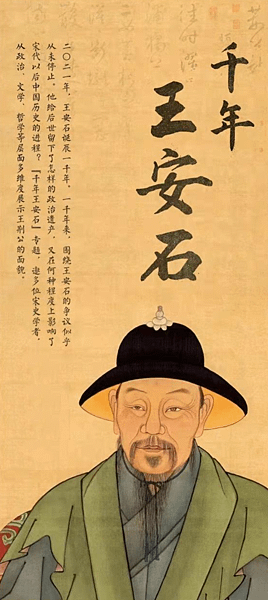 千年
王安石
二〇二一年，王安石诞辰一千年。一千年来，围绕王安石的争议似乎
从未停止。他给后世留下了怎样的政治遗产，又在何种程度上影响了
宋代以后中国历史的进程？『千年王安石』专题，邀多位宋史学者，
从政治、文学、哲学等层面多维度展示王荆公的面貌。